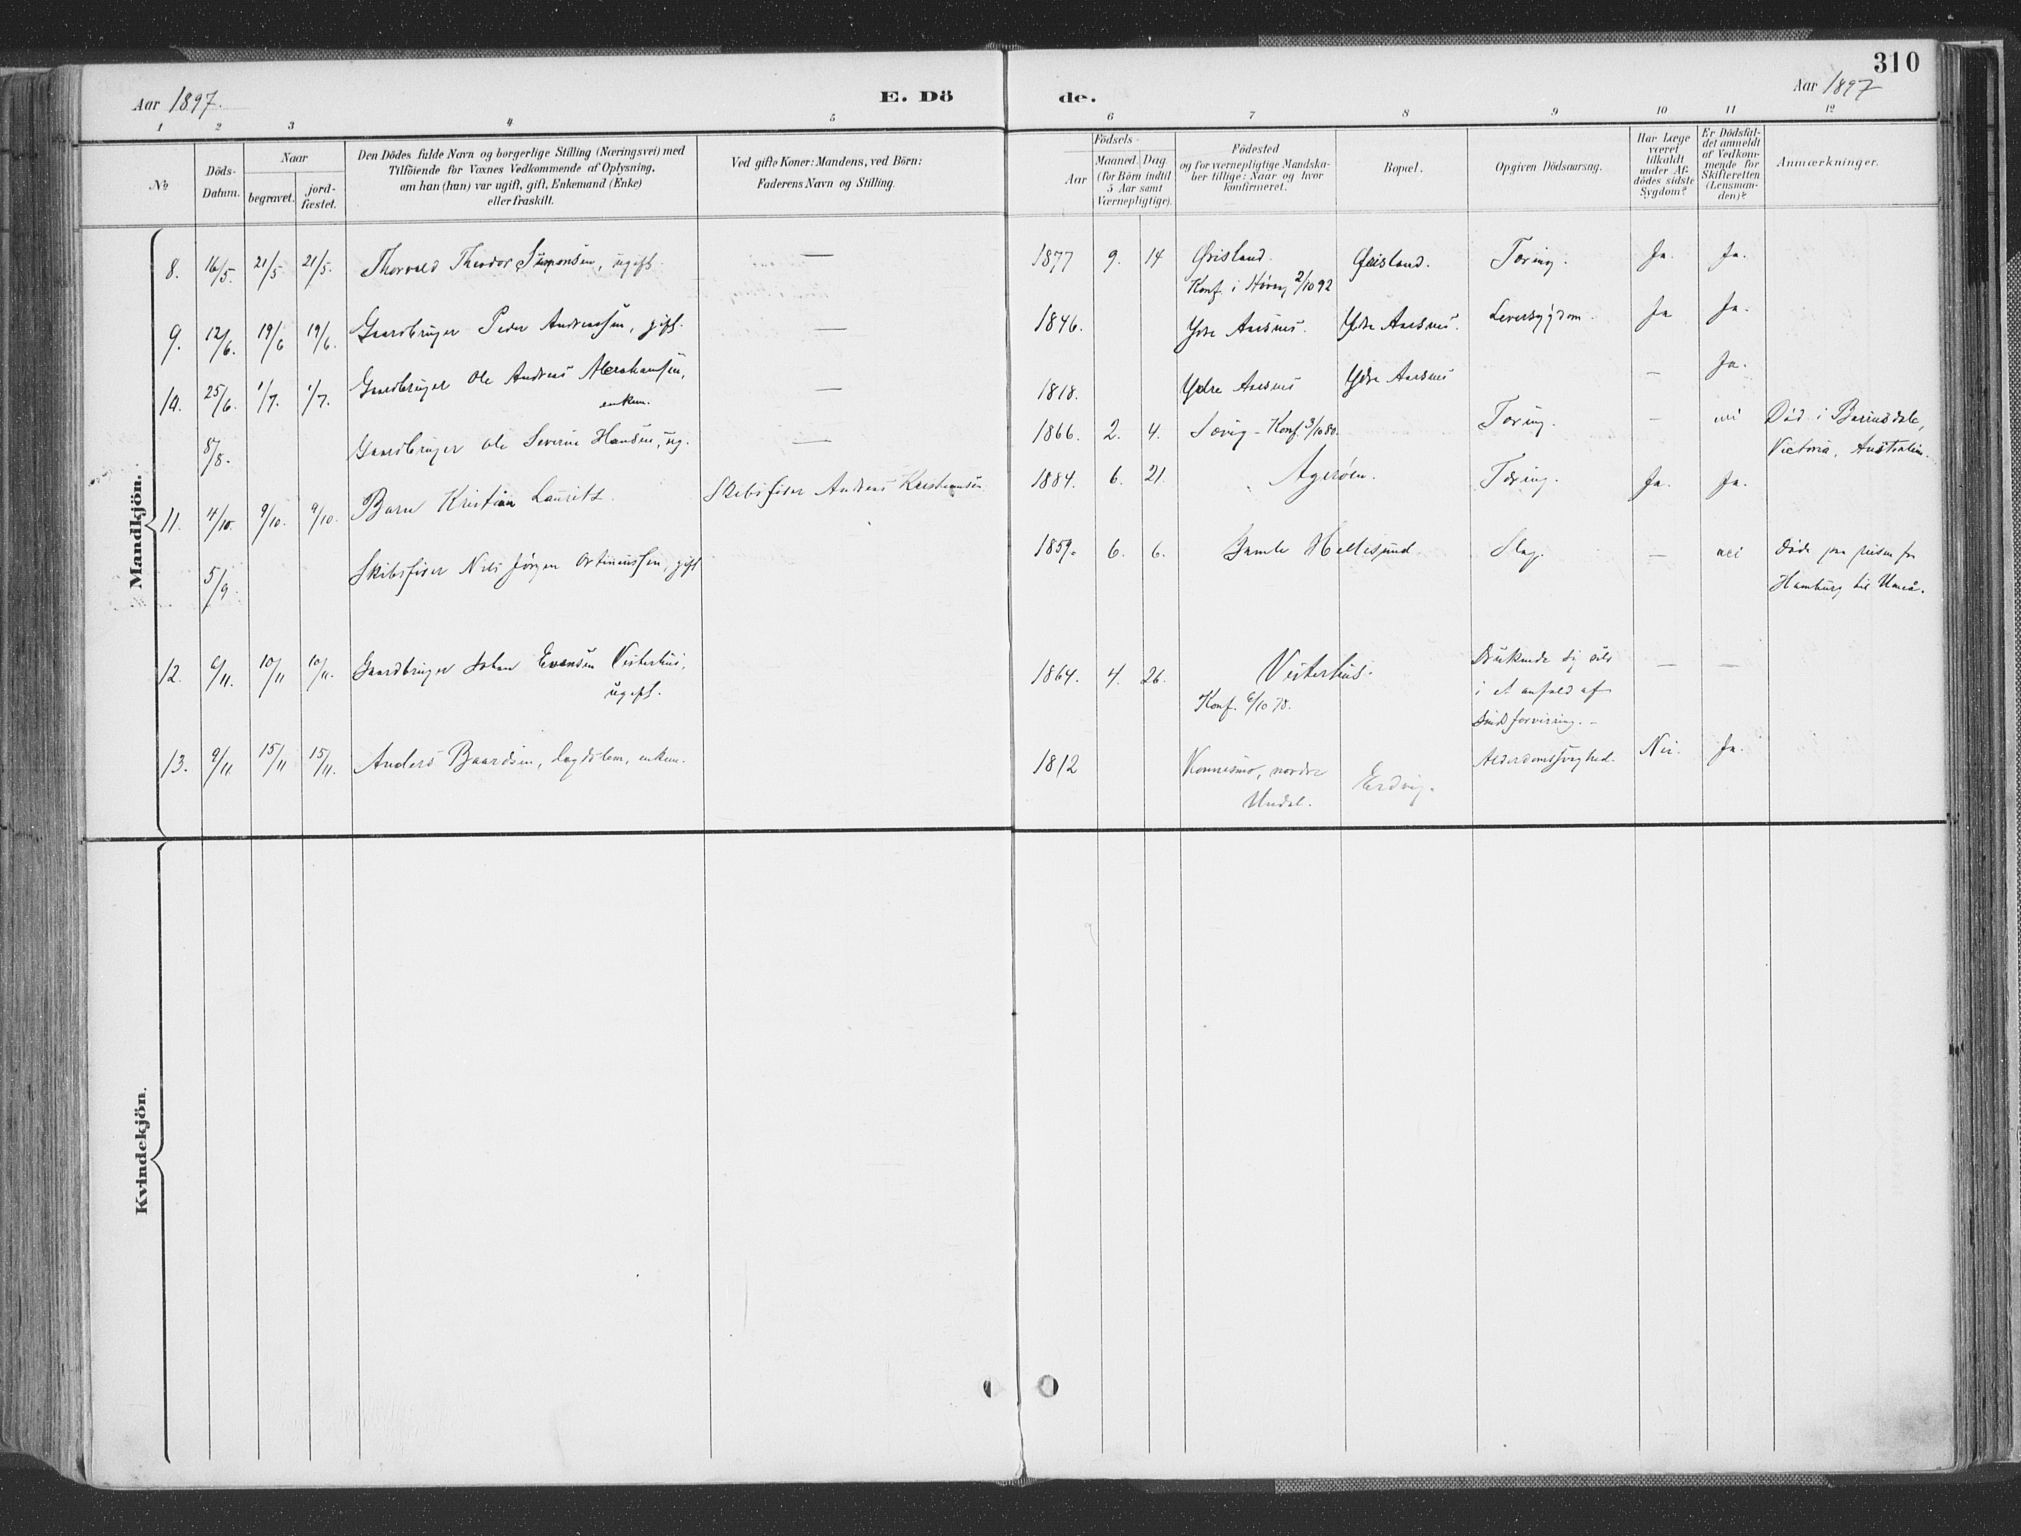 310
Aar 1897.
E. Dö
de.
Aar 1897
1 2 3 4 5
6 7 8 9 10 11 12
№
Döds-
Datum.
Naar
begravet.
jord-
fæstet.
Den Dödes fulde Navn og borgerlige Stilling (Næringsvei) med
Tilföiende for Voxnes Vedkommende af Oplysning,
om han (hun) var ugift, gift, Enkemand (Enke)
eller fraskilt.
Ved gifte Koner: Mandens, ved Börn:
Faderens Navn og Stilling.
Födsels-
Aar
Maaned.
Dag
(for Börn indtil
5 Aar samt
Værnepligtige).
Födested
og for værnepligtige Mandska-
ber tillige: Naar og hvor
konfirmeret.
Bopæl.
Opgiven Dödsaarsag.
Har Læge
været
tilkaldt
under Af-
dödes sidste
Sygdom?
Er Dödsfal-
det anmeldt
af Vedkom-
mende for
Skifteretten
(Lensman-
den)?
Anmærkninger.
Mandkjön.
8. 16/5. 21/5 21/5. Thorvald Theodor Simonsen, ugift. — 1877 9. 14 Øisland. Øisland. Tæring. Ja. Ja.
Konf. i 2/10 92
9. 12/6. 19/6 19/6. Gaardbruger Peder Andreassen, gift. — 1846. Ydre Aasnes. Ydre Aasnes. Leversygdom. Ja Ja.
10. 25/6. 1/7. 1/7. Gaardbruger Ole Andreas Abrahamsen, — 1818. Ydre Aasnes Ydre Aasnes — Ja.
enkem.
8/8. Gaardbruger Ole Severin Hansen, ug. — 1866. 2. 4. Konf. 3/10 80. Tæring. — nei Død i Bairnsdale,
Victoria, Australien.
11. 4/10. 9/10. 9/10. Barn Kristian Laurits. Skibsfører Andreas Kristiansen 1884. 6. 21. Agerøen. Tæring. Ja. Ja.
5/9. Skibsfører Nils Jørgen gift 1859. 6. 6. Gamle Hellesund Slag. — nei Døde paa reisen fra
Hamburg til Umeå.
12. 6/11. 10/11 10/11. Gaardbruger Johan Evensen Vesterhus, 1864. 4. 26. Vesterhus. Druknede sig selv — —
ugift. Konf. 6/10 78. i et anfald af
Sindsforvirring. -
13. 9/11 15/11 15/11. Anders Baardsen, lægdslem, enkem. 1812 Konnesmo, nordre Eidvig. Alderdomssvaghed. Nei. Ja.
Undal.
Kvindekjön.